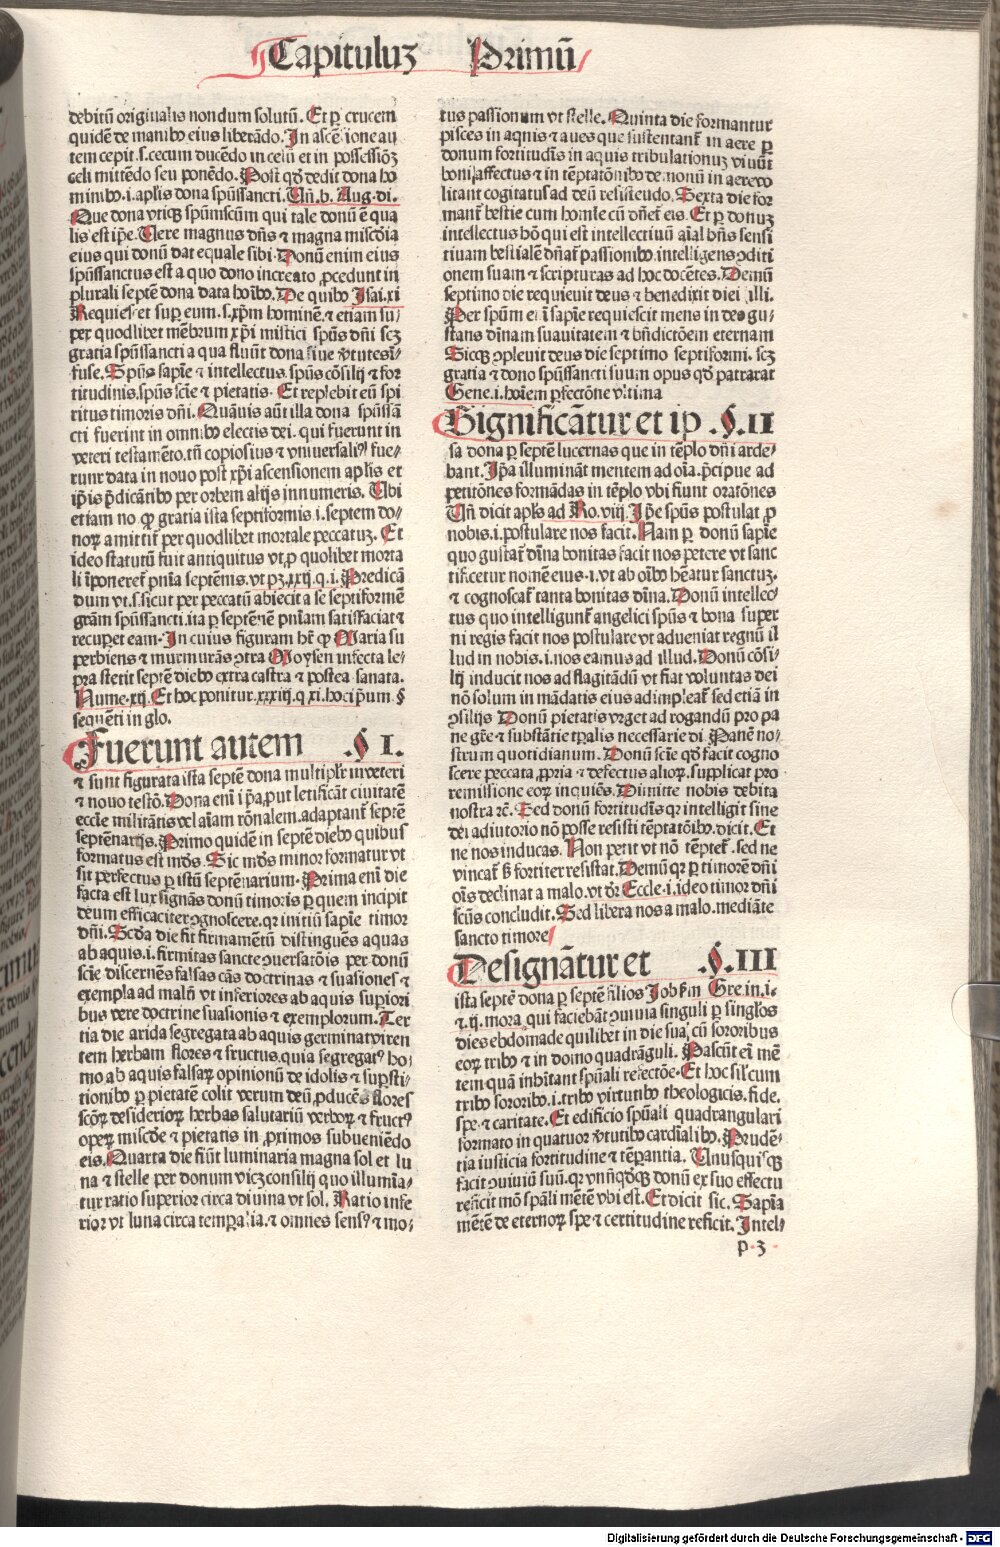 Capituluʒ Primū
debitū originalis nondum solutū. Et ꝑ crucem
quidē de manibꝰ eius liberādo. In ascēsione au
tem cepit .s. cecum ducēdo in celū et in possessiōʒ
celi mittēdo seu ponēdo. Post qd̄ dedit dona ho
minibꝰ .i. aplis dona spūssancti. Vn̄ .b. Aug. di.
Que dona vtiqʒ spūmscūm qui tale donū ē qua
lis est ip̄e. Vere magnus dn̄s ⁊ magna miscḋia
eius qui donū dat equale sibi. Donū enim eius
spūssanctus est a quo dono increato ꝓcedunt in
plurali septē dona data hoībꝰ. De quibꝰ Isai. xi
Requiescet super eum .s. xp̄m hominē. ⁊ etiam su/
per quodlibet mēbrum xp̄i mistici spūs dn̄i scʒ
gratia spūssancti a qua fluūt dona siue v̓tutes ī/
fuse. Spūs sapīe ⁊ intellectus. spūs cōsilij ⁊ for
titudinis. spūs scīe ⁊ pietatis. Et replebit eū spi
ritus timoris dn̄i. Quāuis aūt illa dona spūssā
cti fuerint in omnibꝰ electis dei. qui fuerunt in
veteri testamēto. tn̄ copiosius ⁊ vniuersaliꝰ fue/
runt data in nouo post xp̄i ascensionem aplis et
ip̄is p̄dicātibꝰ per orbem alijs innumeris. Vbi
etiam no. ꝙ gratia ista septiformis .i. septem do/
noꝝ amittit̄ per quodlibet mortale peccatuʒ. Et
ideo statutū fuit antiquitus vt ꝓ quolibet morta
li īponeret̄ pnīa septēnis. vt pʒ .xxij. q. i. Predicā
dum vt .s. sicut per peccatū abiecit a se septiformē
grām spūssancti. ita ꝑ septēnē pnīam satisfaciat ⁊
recuꝑet eam. In cuius figuram hr̄ ꝙ Maria su
perbiens ⁊ murmurās ꝯtra Moysen infecta le/
pra stetit septē diebꝰ extra castra ⁊ postea sanata.
Nume. xij. Et hoc ponitur .xxxiij. q. xi. hoc ip̄um. §
sequēti in glo.
Fuerunt autem .§ I.
⁊ sunt figurata ista septē dona multiplr̄ in veteri
⁊ nouo testō. Dona enī ip̄a ꝓut letificāt ciuitatē
eccl̄e militātis vel aīam rōnalem. adaptant̄ septē
septēnarijs. Primo quidē in septē diebꝰ quibus
formatus est mūdꝰs. Sic mūdꝰs minor formatur vt
sit perfectus ꝑ istū septēnarium. Prima enī die
facta est lux signās donū timoris per quem incipit
deum efficaciter ꝯgnoscere. qꝛ initiū sapīe timor
dn̄i. Scḋa die fit firmamētū distinguēs aquas
ab aquis .i. firmitas sancte ꝯuersatōis per donū
scīe discernēs falsas cās doctrinas ⁊ suasiones ⁊
exempla ad malū vt inferiores ab aquis supiori
bus vere doctrine suasionis ⁊ exemplorum. Ter
tia die arida segregata ab aquis germinat viren
tem herbam flores ⁊ fructus. quia segregatꝰ ho/
mo ab aquis falsaꝝ opinionū de idolis ⁊ suꝑsti/
tionibꝰ ꝑ pietatē colit verum deū ꝓducēs flores
scōꝝ desiderioꝝ herbas salutariū verboꝝ ⁊ fructꝰ
operꝝ miscḋie ⁊ pietatis in ꝓximos subueniēdo
eis. Quarta die fiūt luminaria magna sol et lu
na ⁊ stelle per donum viczconsilij quo illumīa/
tur ratio superior circa diuina vt sol. Ratio infe
rior vt luna circa tempalia. ⁊ omnes sensꝰ ⁊ mo/
tus passionum vt stelle. Quinta die formantur
pisces in aquis ⁊ aues que sustentant̄ in aere ꝑ
donum fortitudīs in aquis tribulationuʒ viuūt
boni affectus ⁊ in tēptatōnibꝰ demonū in aere vo
litant cogitatus ad deū resistendo. Sexta die for
mant̄ bestie cum homīe cū dn̄et̄ eis. Et ꝑ donuʒ
intellectus hō qui est intellectiuū aīal bn̄s sensi
tiuam bestialē dn̄at̄ passionibꝰ. intelligens ꝯditi
onem suam ⁊ scripturas ad hoc docētes. Demū
septimo die requieuit deus ⁊ benedixit diei illi.
Per spūm eī ī sapīe requiescit mens in deo gu/
stans dīnam suauitatem ⁊ bn̄dictōem eternam
Sicqʒ ꝯpleuit deus die septimo septiformi. scʒ
gratia ⁊ dono spūssancti suum opus qd̄ patrarat
Gene. i. hoīem ꝑfectōne vltima
Significātur et ip .§. II
sa dona ꝑ septē lucernas que in tēplo dn̄i arde/
bant. Ip̄a illumināt mentem ad oīa. p̄cipue ad
petitōnes formādas in tēplo vbi fiunt oratōnes
Vn̄ dicit apl̄s ad Ro. viij. Ip̄e spūs postulat ꝓ
nobis .i. postulare nos facit. Nam ꝑ donū sapīe
quo gustat̄ dīna bonitas facit nos petere vt sanc
tificetur nomē eius .i. vt ab oībꝰ hēatur sanctuʒ.
⁊ cognoscat̄ tanta bonitas dīna. Donū intellec/
tus quo intelligunt̄ angelici spūs ⁊ bona super
ni regis facit nos postulare vt adueniat regnū il
lud in nobis .i. nos eamus ad illud. Donū cōsi/
lij inducit nos ad flagitādū vt fiat voluntas dei
nō solum in mādatis eius adimpleat̄ sed etiā in
ꝯsilijs Donū pietatis vrget ad rogandū pro pa
ne grē ⁊ substātie tꝑalis necessarie di. Panē no/
strum quotidianum. Donū scīe qd̄ facit cogno
scere peccata ꝓpria ⁊ defectus alioꝝ. supplicat pro
remissione eoꝝ inquiēs. Dimitte nobis debita
nostra rē. Sed donū fortitudīs qꝛ intelligit sine
dei adiutorio nō posse resisti tēptatōibꝰ. dicit. Et
ne nos inducas. Non petit vt nō tēptet̄. sed ne
vincat̄ sʒ fortiter resistat. Demū qꝛ ꝑ timorē dn̄i
oīs declinat a malo. vt dr̄ Eccle. i. ideo timor dn̄i
scūs concludit. Sed libera nos a malo. mediāte
sancto timore
Designātur et .§. III
ista septē dona ꝑ septē filios Job sm̄ Gre. in .i.
⁊ .ij. mora. qui faciebāt ꝯuiuia singuli ꝑ singlos
dies ebdomade quilibet in die sua cū sororibus
eoꝝ tribꝰ ⁊ in domo quadrāguli. Pascūt eī mē
tem quā inhītant spūali refectōe. Et hoc sil̄ cum
tribꝰ sororibꝰ .i. tribꝰ virtutibꝰ theologicis. fide.
spe. ⁊ caritate. Et edificio spūali quadrangulari
formato in quatuor v̓tutibꝰ cardīalibꝰ. Prudē/
tia iusticia fortitudine ⁊ tēperantia. Vnusquisqʒ
facit ꝯuiuiū suū. qꝛ vnūqd̄qʒ donū ex suo effectu
reficit mō spāli mētē vbi est. Et dicit sic. Sapīa
mētē de eternoꝝ spe ⁊ certitudine reficit. Intel/
p. 3
Digitalisierung gefördert durch die Deutsche Forschungsgemeinschaft - DFG